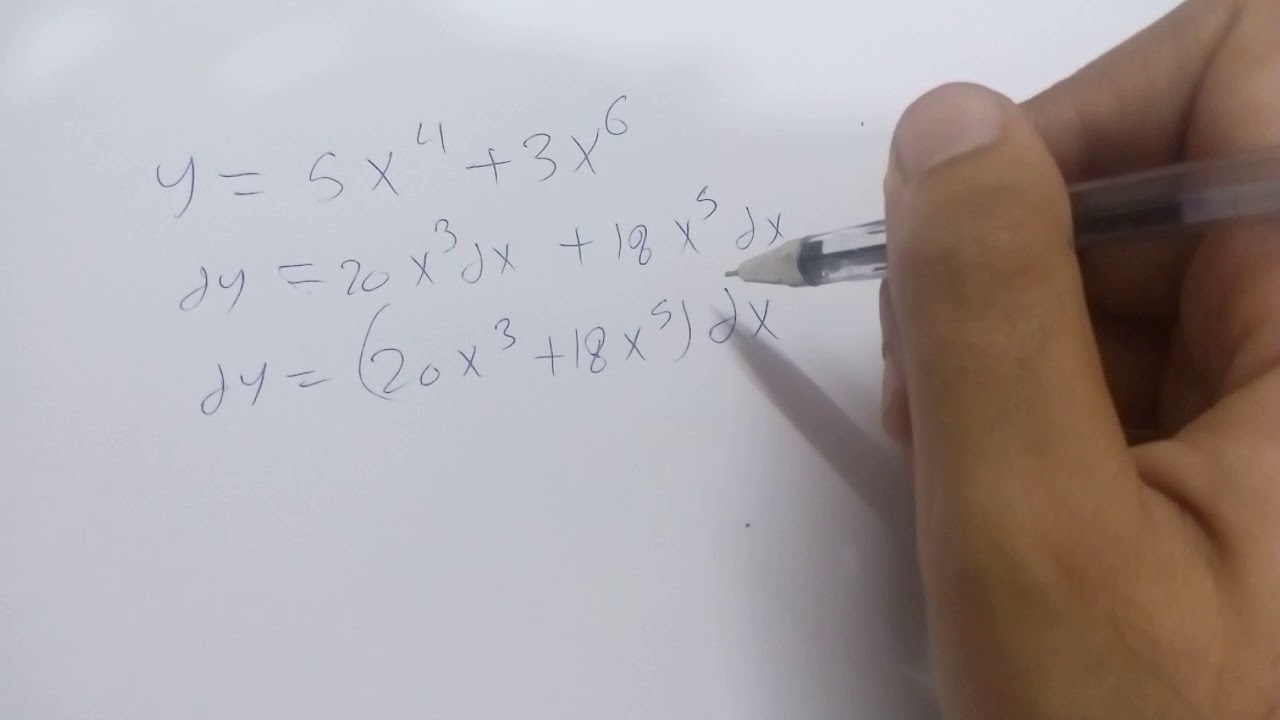 y = 5x⁴ + 3x⁶
dy = 20x³dx + 18x⁵dx
dy = (20x³ + 18x⁵)dx